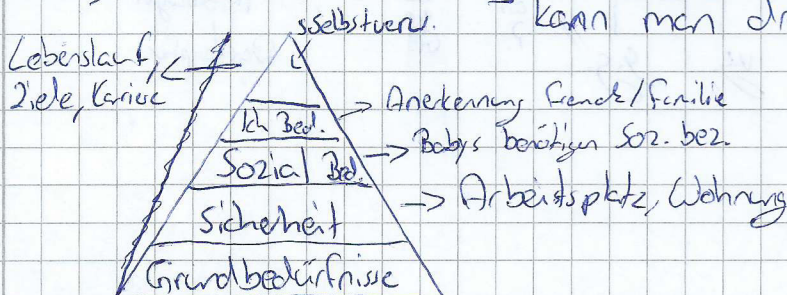 sSelbstverw.
kann man
Lebenslauf,
Ziele, Karriere
Ich Bed.
Anerkennung Freude/Familie
Sozial Bed.
Babys benötigen Soz. bez.
Sicherheit
Arbeitsplatz, Wohnung
Grundbedürfnisse